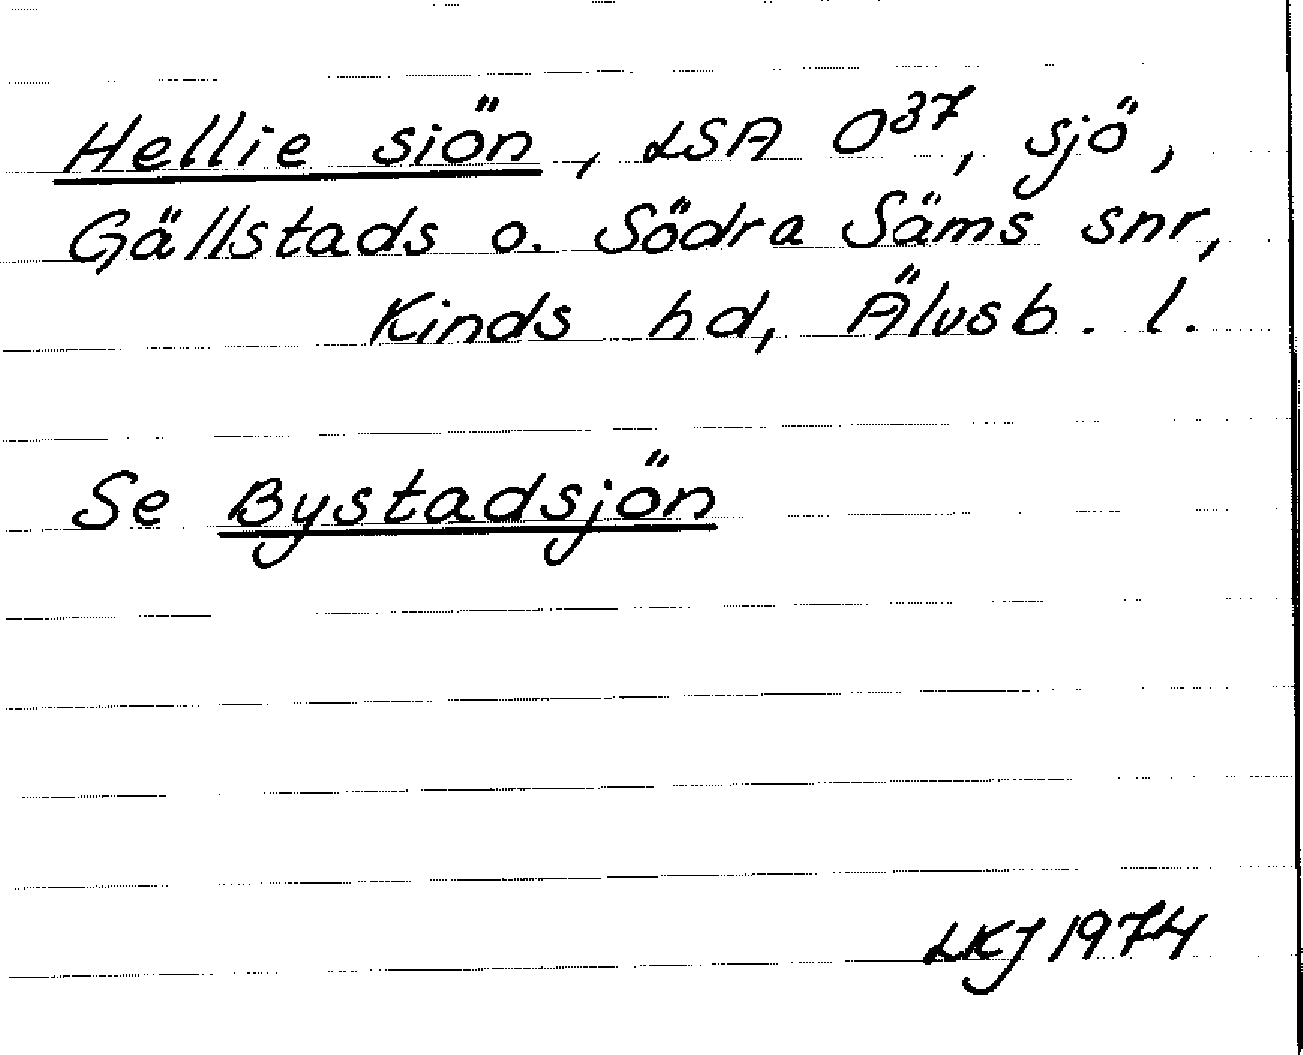 Hellie siön, LSA O37, sjö,
Gällstads o. Södra Säms snr,
Kinds hd, Älvsb. l.
Se Bystadsjön
LKJ 1974